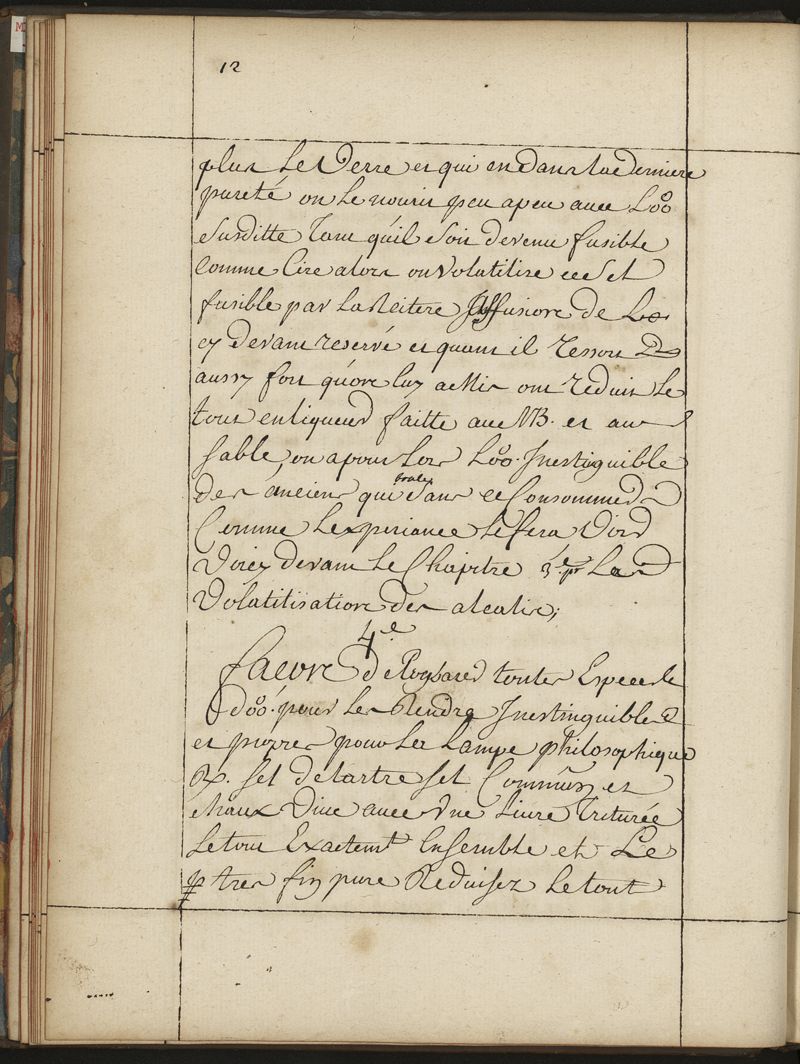 12
plus Le Verre et qui en dans sa derniere
pureté on Le nourir peu apeu avec L'oo
Susditte Tant qu'il Soit devenu fusible
Comme Cire alors on Volatilise ce Sel
fusible par La Reitere Jnffusiore de L
cy devant reservé et quant il ressort
aussy fort qu'ore luy a Mis ont reduit Le
tout en liqueur faitte avec MB. et au
Sable, on a pour Lors L'oo. Jnextinguible
des anciens qui brule Sans Ce Consommer
Comme L'experiance Le fera Voir
Voiez devant Le Chapitre La
Volatilisatiore des alcalis;
4.e
facore de preparer toutes Espece de
d'oo. pour Les Rendre Jnextinguible
et propres pour Les Lampe philosophique
Sel de tartre Sel Commun et
chaux Vive avec Vne Livre Triturée
Le tout Exactemt Ensemble et Le
tres fin pure Reduisez Le tout